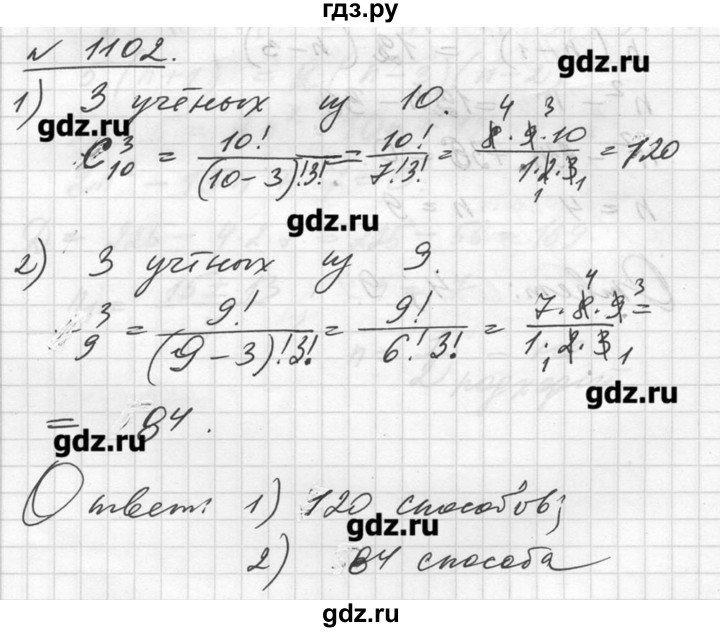 гдз.ру
№ 1102.
gdz.ru
1) 3 учёных из 10.
gdz.ru
C₁₀³ = 10!/(10-3)!3! = 10!/7!3! = 8·9·10/1·2·3 = 120
gdz.ru
2) 3 учёных из 9.
₉³ = 9!/(9-3)!3! = 9!/6!3! = 7·8·9/1·2·3 =
gdz.ru
= 84.
gdz.ru
Ответ: 1) 120 способов;
gdz.ru
2) 84 способа
gdz.ru